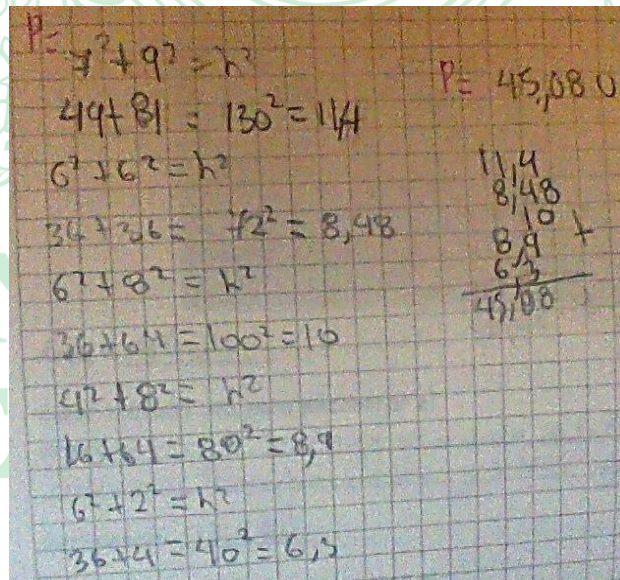 P=
7²+9²=h²
49+81=130²=11,4
6²+6²=h²
36+36=72²=8,48
6²+8²=h²
36+64=100²=10
4²+8²=h²
16+64=80²=8,9
6²+2²=h²
36+4=40²=6,3
P=45,08 U
11,4
8,48
10
8,9 +
6,3
45,08